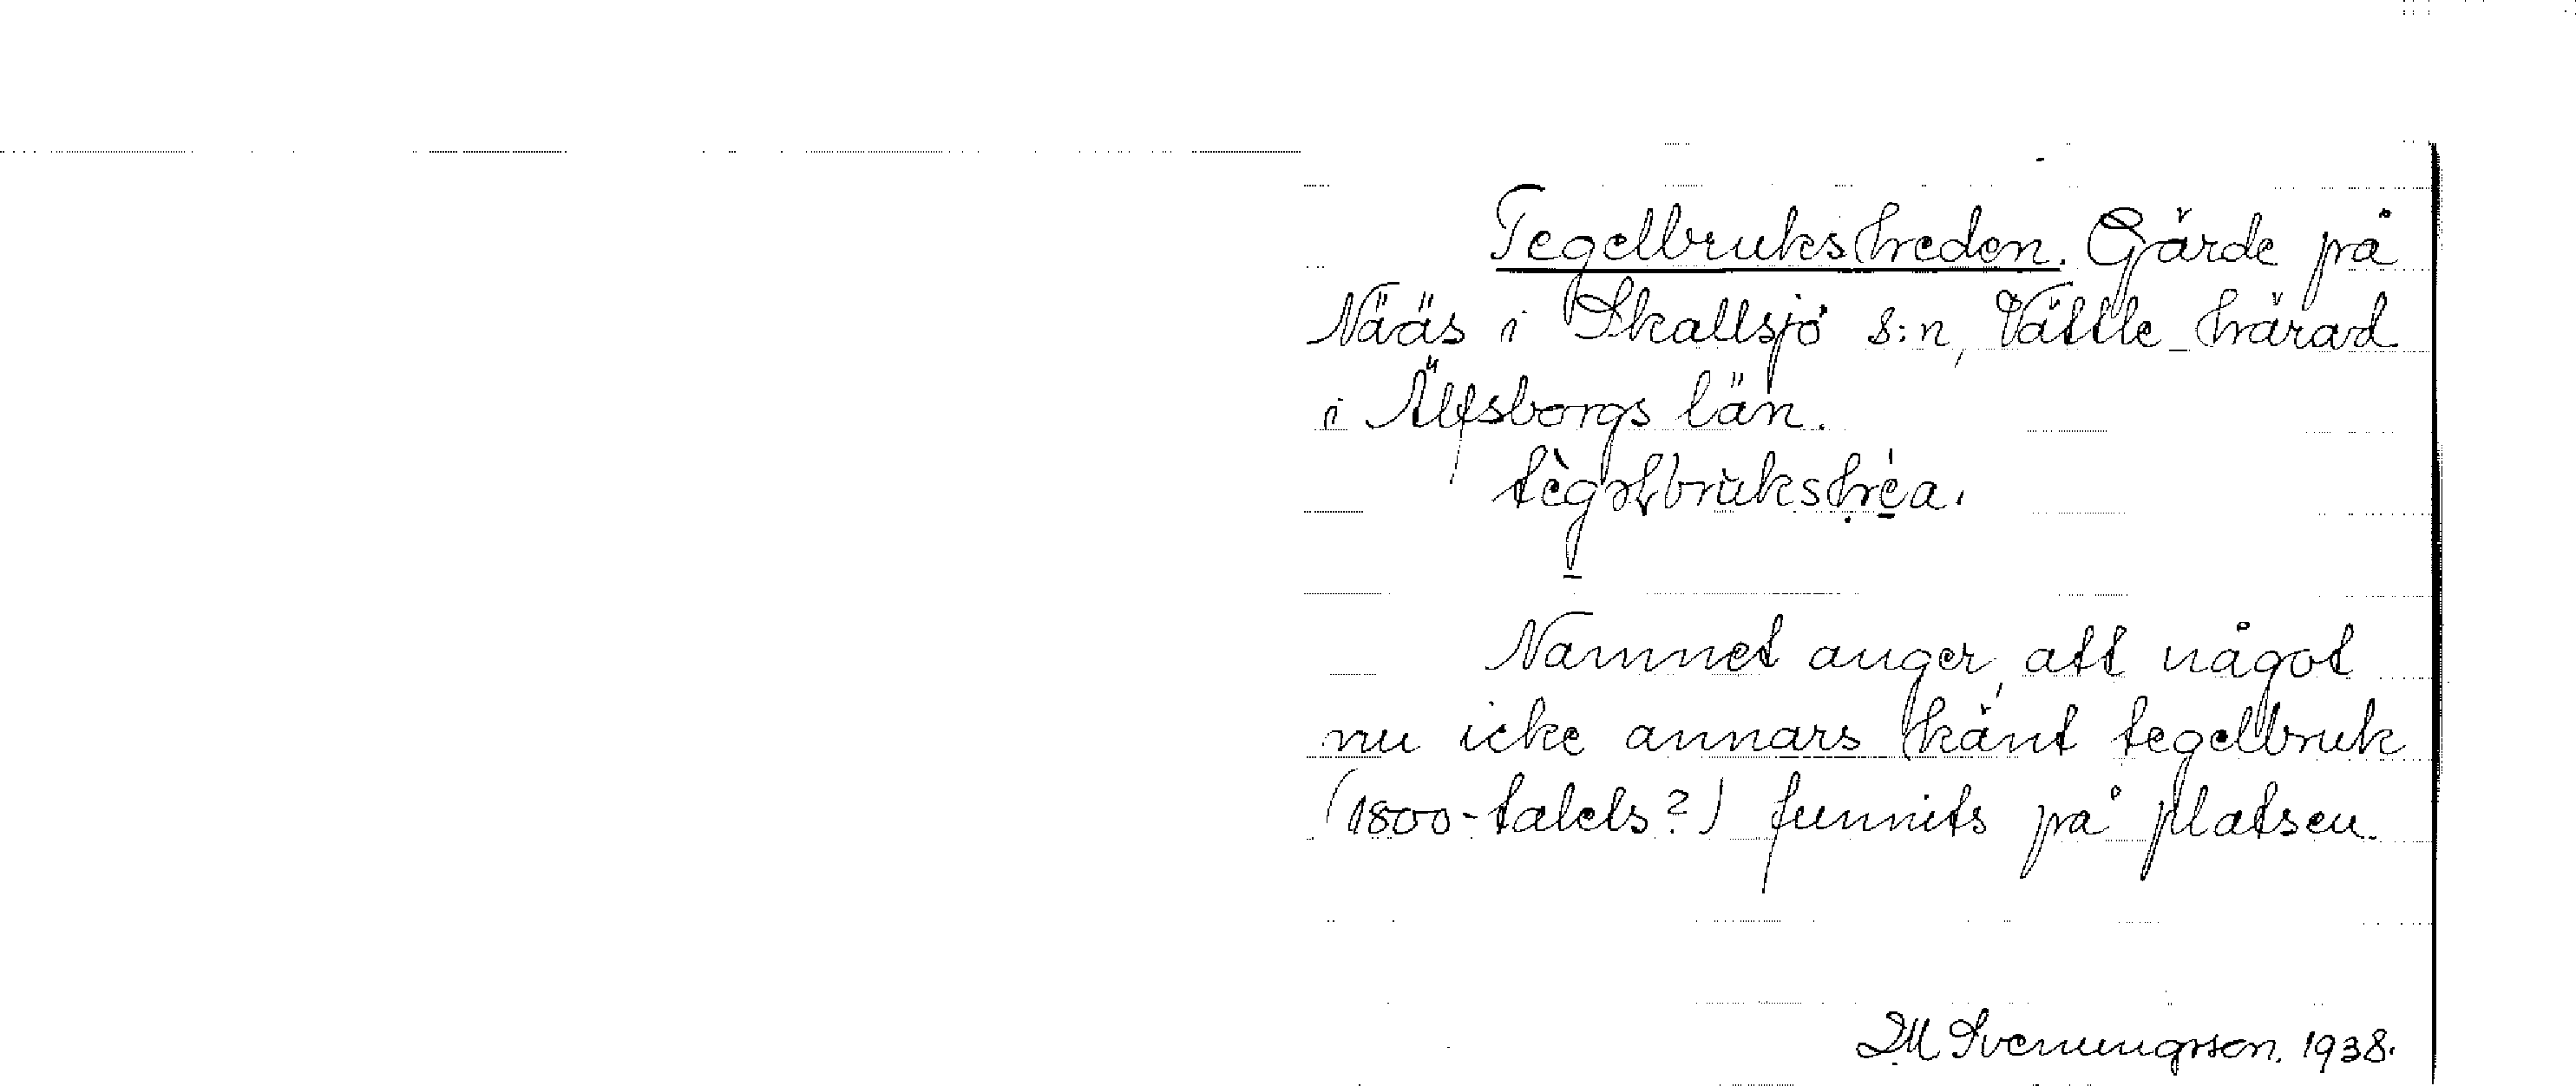 Tegelbrukshreden. Gärde på
Nääs i Skallsjö s:n, Vättle härad
i Älfsborgs län.
Namnet anger, att något
nu icke annars känt tegelbruk
(1800-talets?) funnits på platsen.
Svenungsson. 1938.